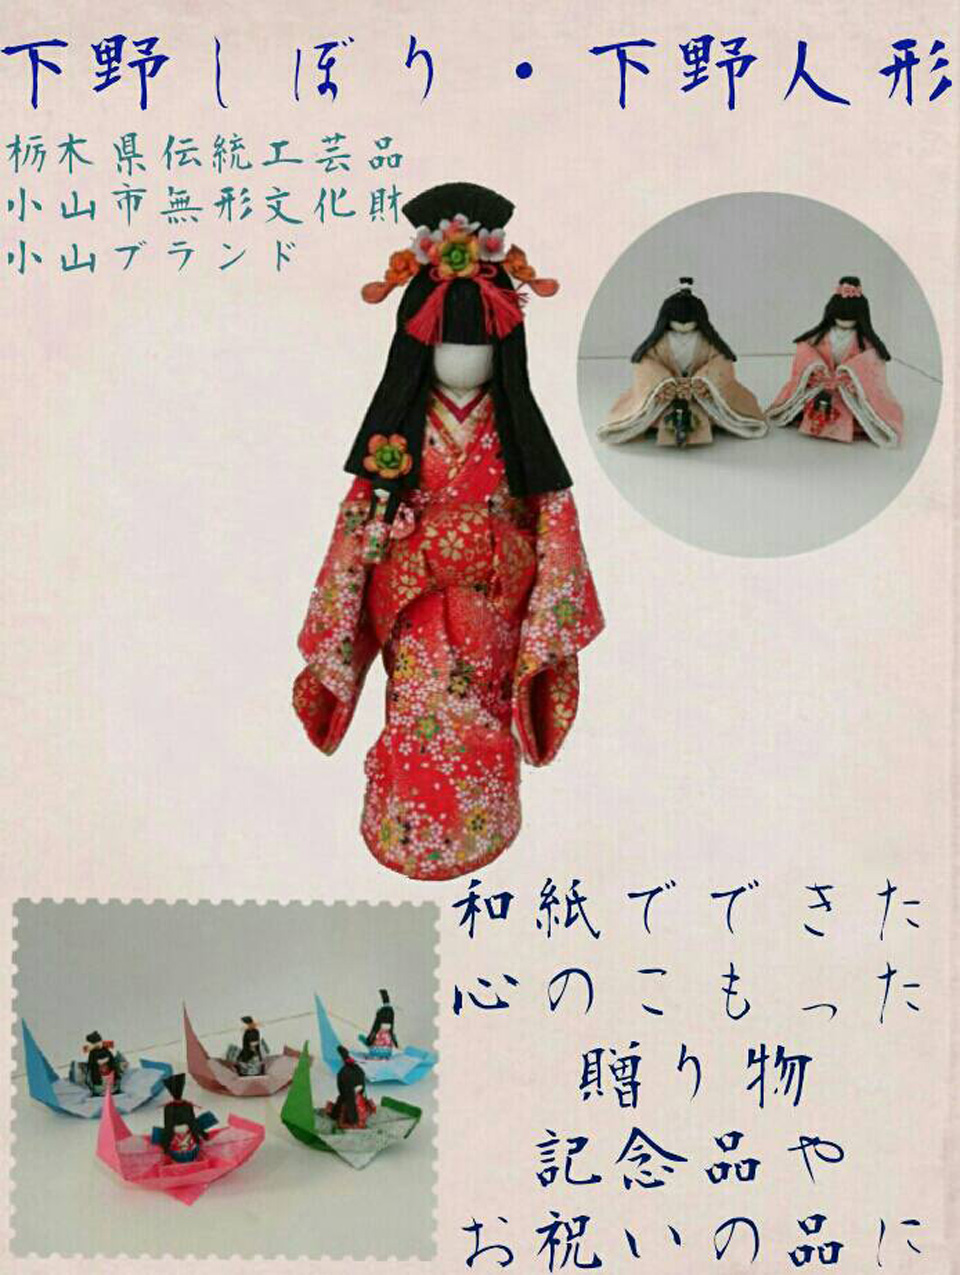 下野しぼり・下野人形
栃木県伝統工芸品
小山市無形文化財
小山ブランド
和紙でできた
心のこもった
贈り物
記念品や
お祝いの品に